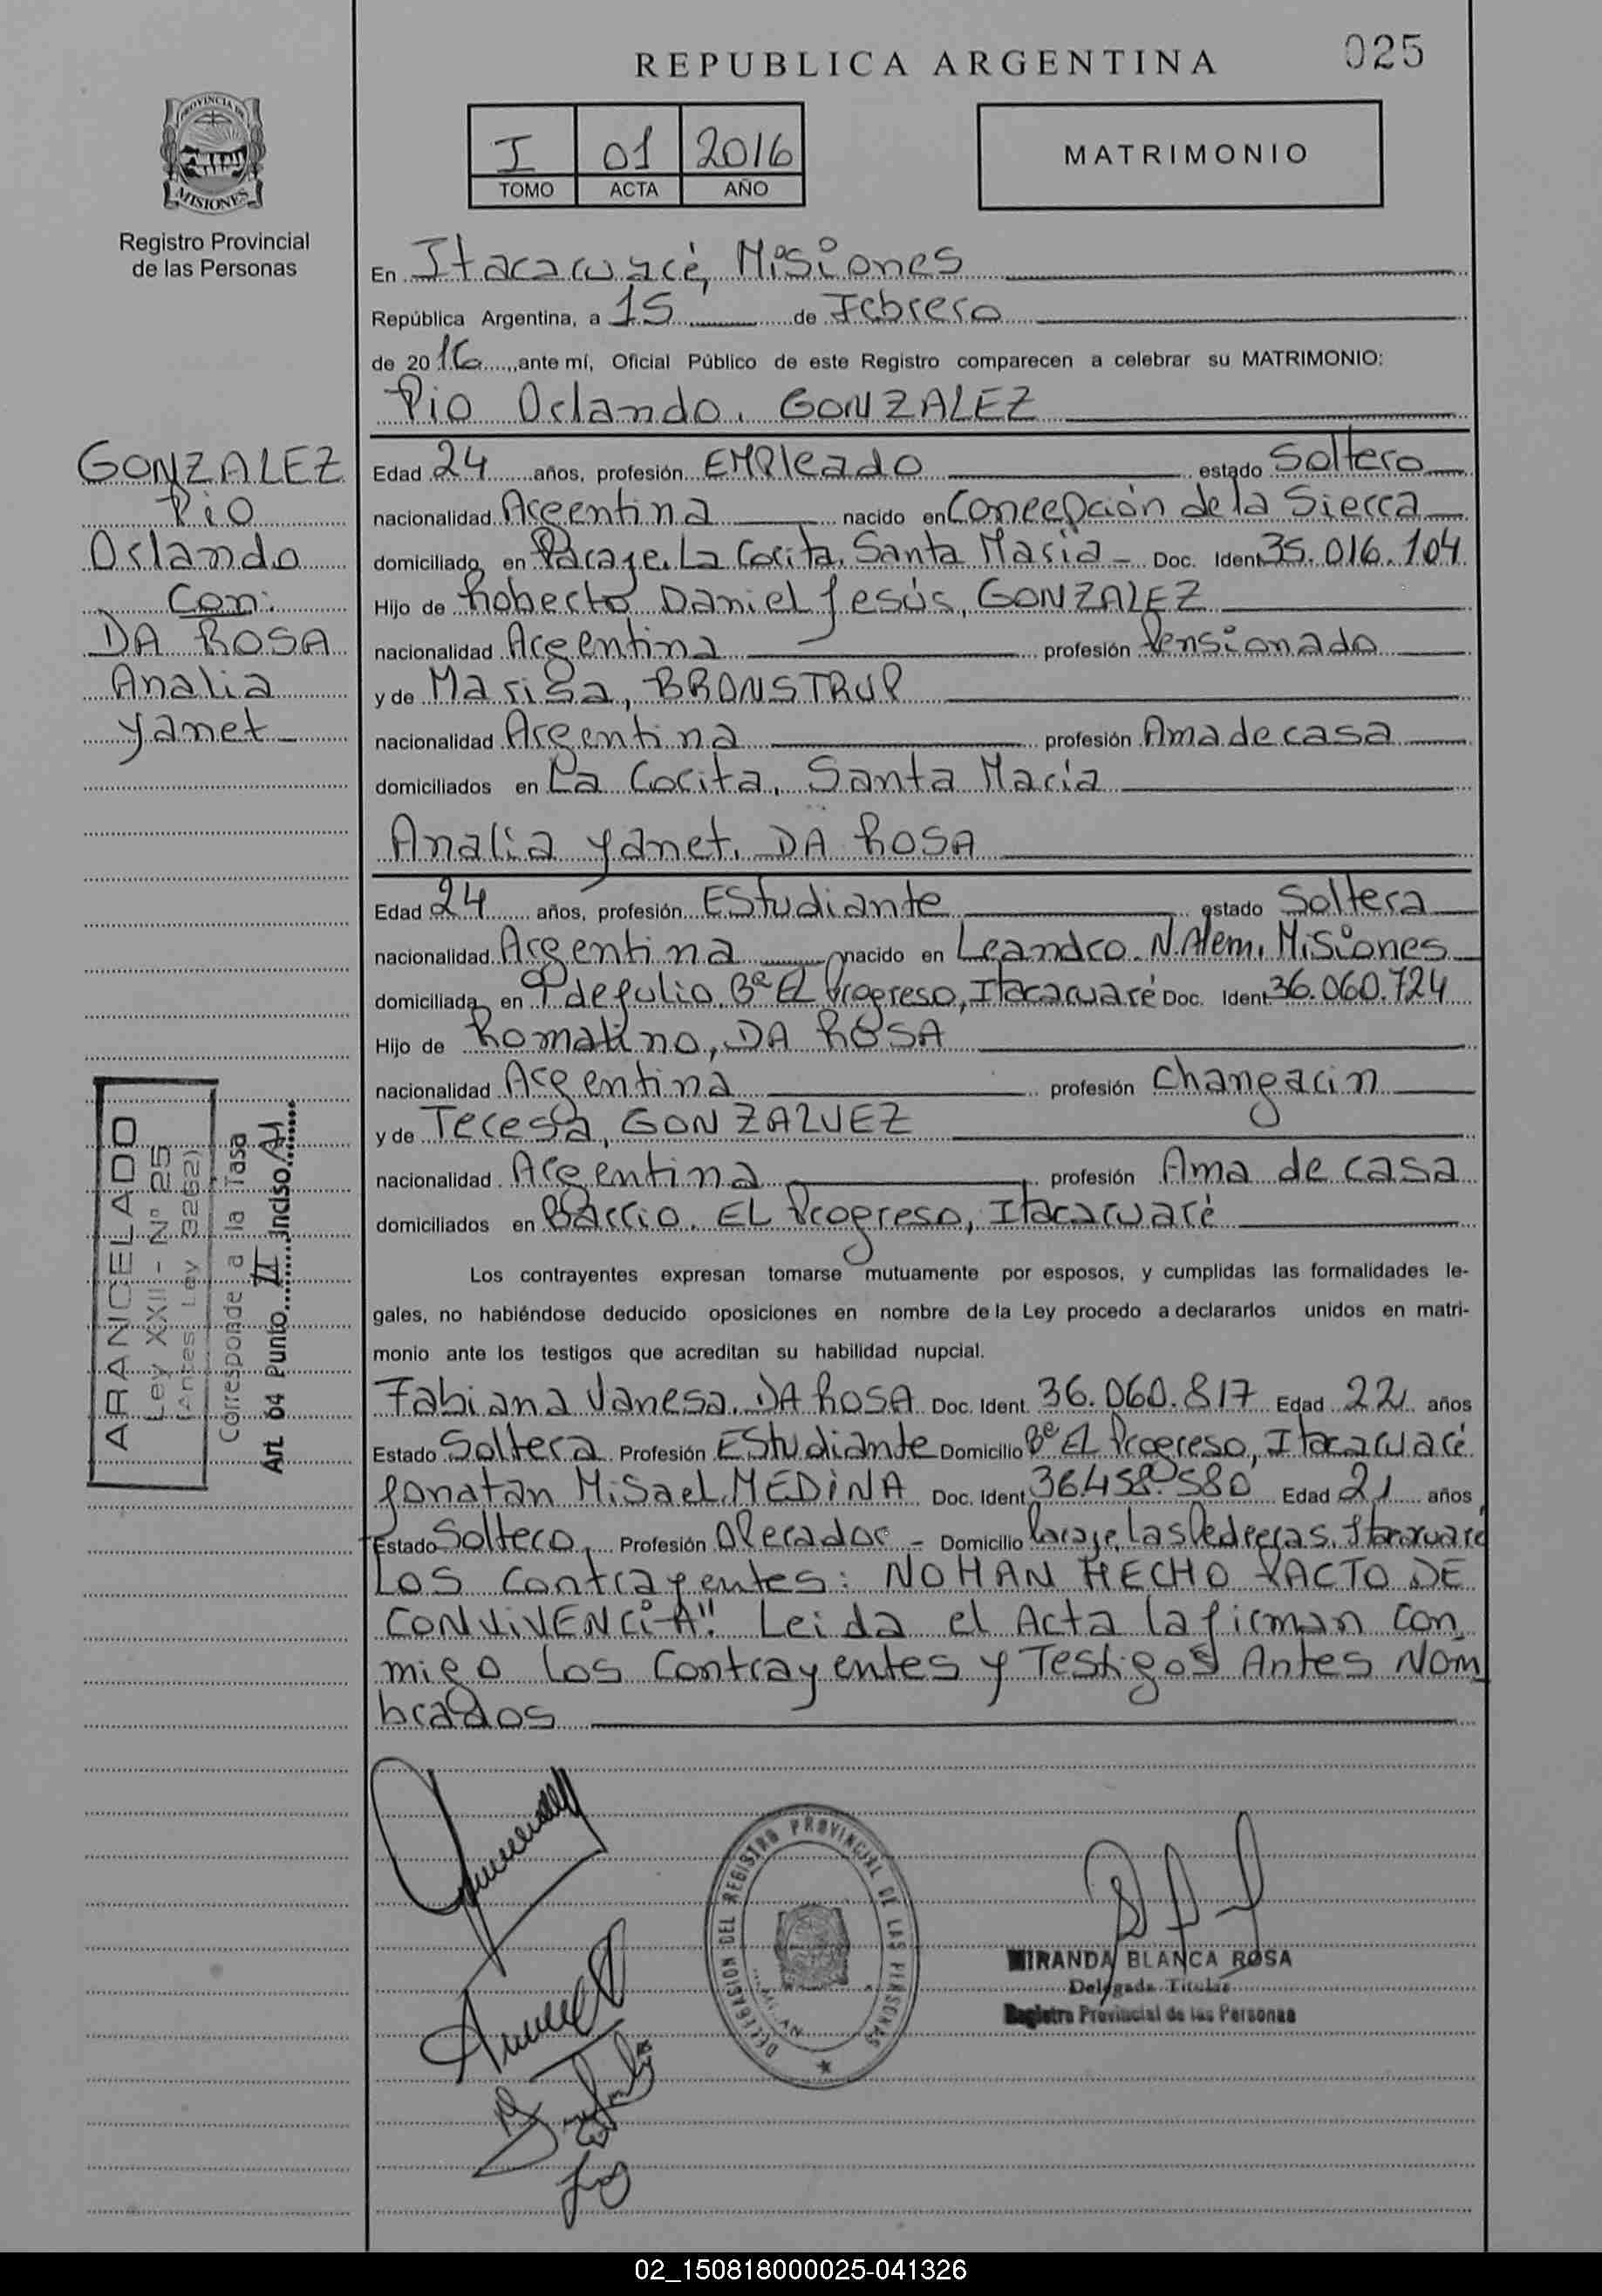 REPUBLICA ARGENTINA
025
PROVINCIA DE
MISIONES
Registro Provincial
de las Personas
I 01 2016
TOMO ACTA AÑO
MATRIMONIO
En Itacaruaré, Misiones
República Argentina, a 15 de Febrero
de 2016, ante mí, Oficial Público de este Registro comparecen a celebrar su MATRIMONIO:
Pio Orlando, GONZALEZ
GONZALEZ
Pio
Orlando
Con:
DA ROSA
Analia
Yanet
Edad 24 años, profesión EMPleado estado Soltero
nacionalidad Argentina nacido en Concepción de la Sierra
domiciliado en Paraje La Corita, Santa Maria Doc. Ident 35.016.104
Hijo de Roberto Daniel Jesús, GONZALEZ
nacionalidad Argentina profesión Pensionado
y de Marisa, BRONSTRUP
nacionalidad Argentina profesión Ama de casa
domiciliados en La Corita, Santa María
Analia Yanet, DA ROSA
Edad 24 años, profesión EStudiante estado Soltera
nacionalidad Argentina nacido en Leandro N. Alem, Misiones
domiciliada en 9 de Julio, Bº EL Progreso, Itacaruaré Doc. Ident 36.060.724
Hijo de Romalino, DA ROSA
nacionalidad Argentina profesión Changarin
y de Teresa, GONZALVEZ
nacionalidad Argentina profesión Ama de casa
domiciliados en Barrio EL Progreso, Itacaruaré
ARANCELADO
Ley XXII - Nº 25
(Antes Ley 3262)
Corresponde a la Tasa
Art. 04 Punto II Inciso A1
Los contrayentes expresan tomarse mutuamente por esposos, y cumplidas las formalidades le-
gales, no habiéndose deducido oposiciones en nombre de la Ley procedo a declararlos unidos en matri-
monio ante los testigos que acreditan su habilidad nupcial.
Fabiana Vanesa, DA ROSA Doc. Ident. 36.060.817 Edad 22 años
Estado Soltera Profesión EStudiante Domicilio Bº EL Progreso, Itacaruaré
Jonatan Misael, MEDINA Doc. Ident 36.458.580 Edad 21 años
Estado Soltero Profesión Operador - Domicilio Paraje Las Pedreras, Itacaruaré
Los Contrayentes: NO HAN HECHO PACTO DE
CONVIVENCIA". Leida el Acta la firman con
migo los Contrayentes y Testigos Antes Nom
brados
DELEGACION DEL REGISTRO PROVINCIAL DE LAS PERSONAS
MIRANDA BLANCA ROSA
Delegada Titular
Registro Provincial de las Personas
02_150818000025-041326